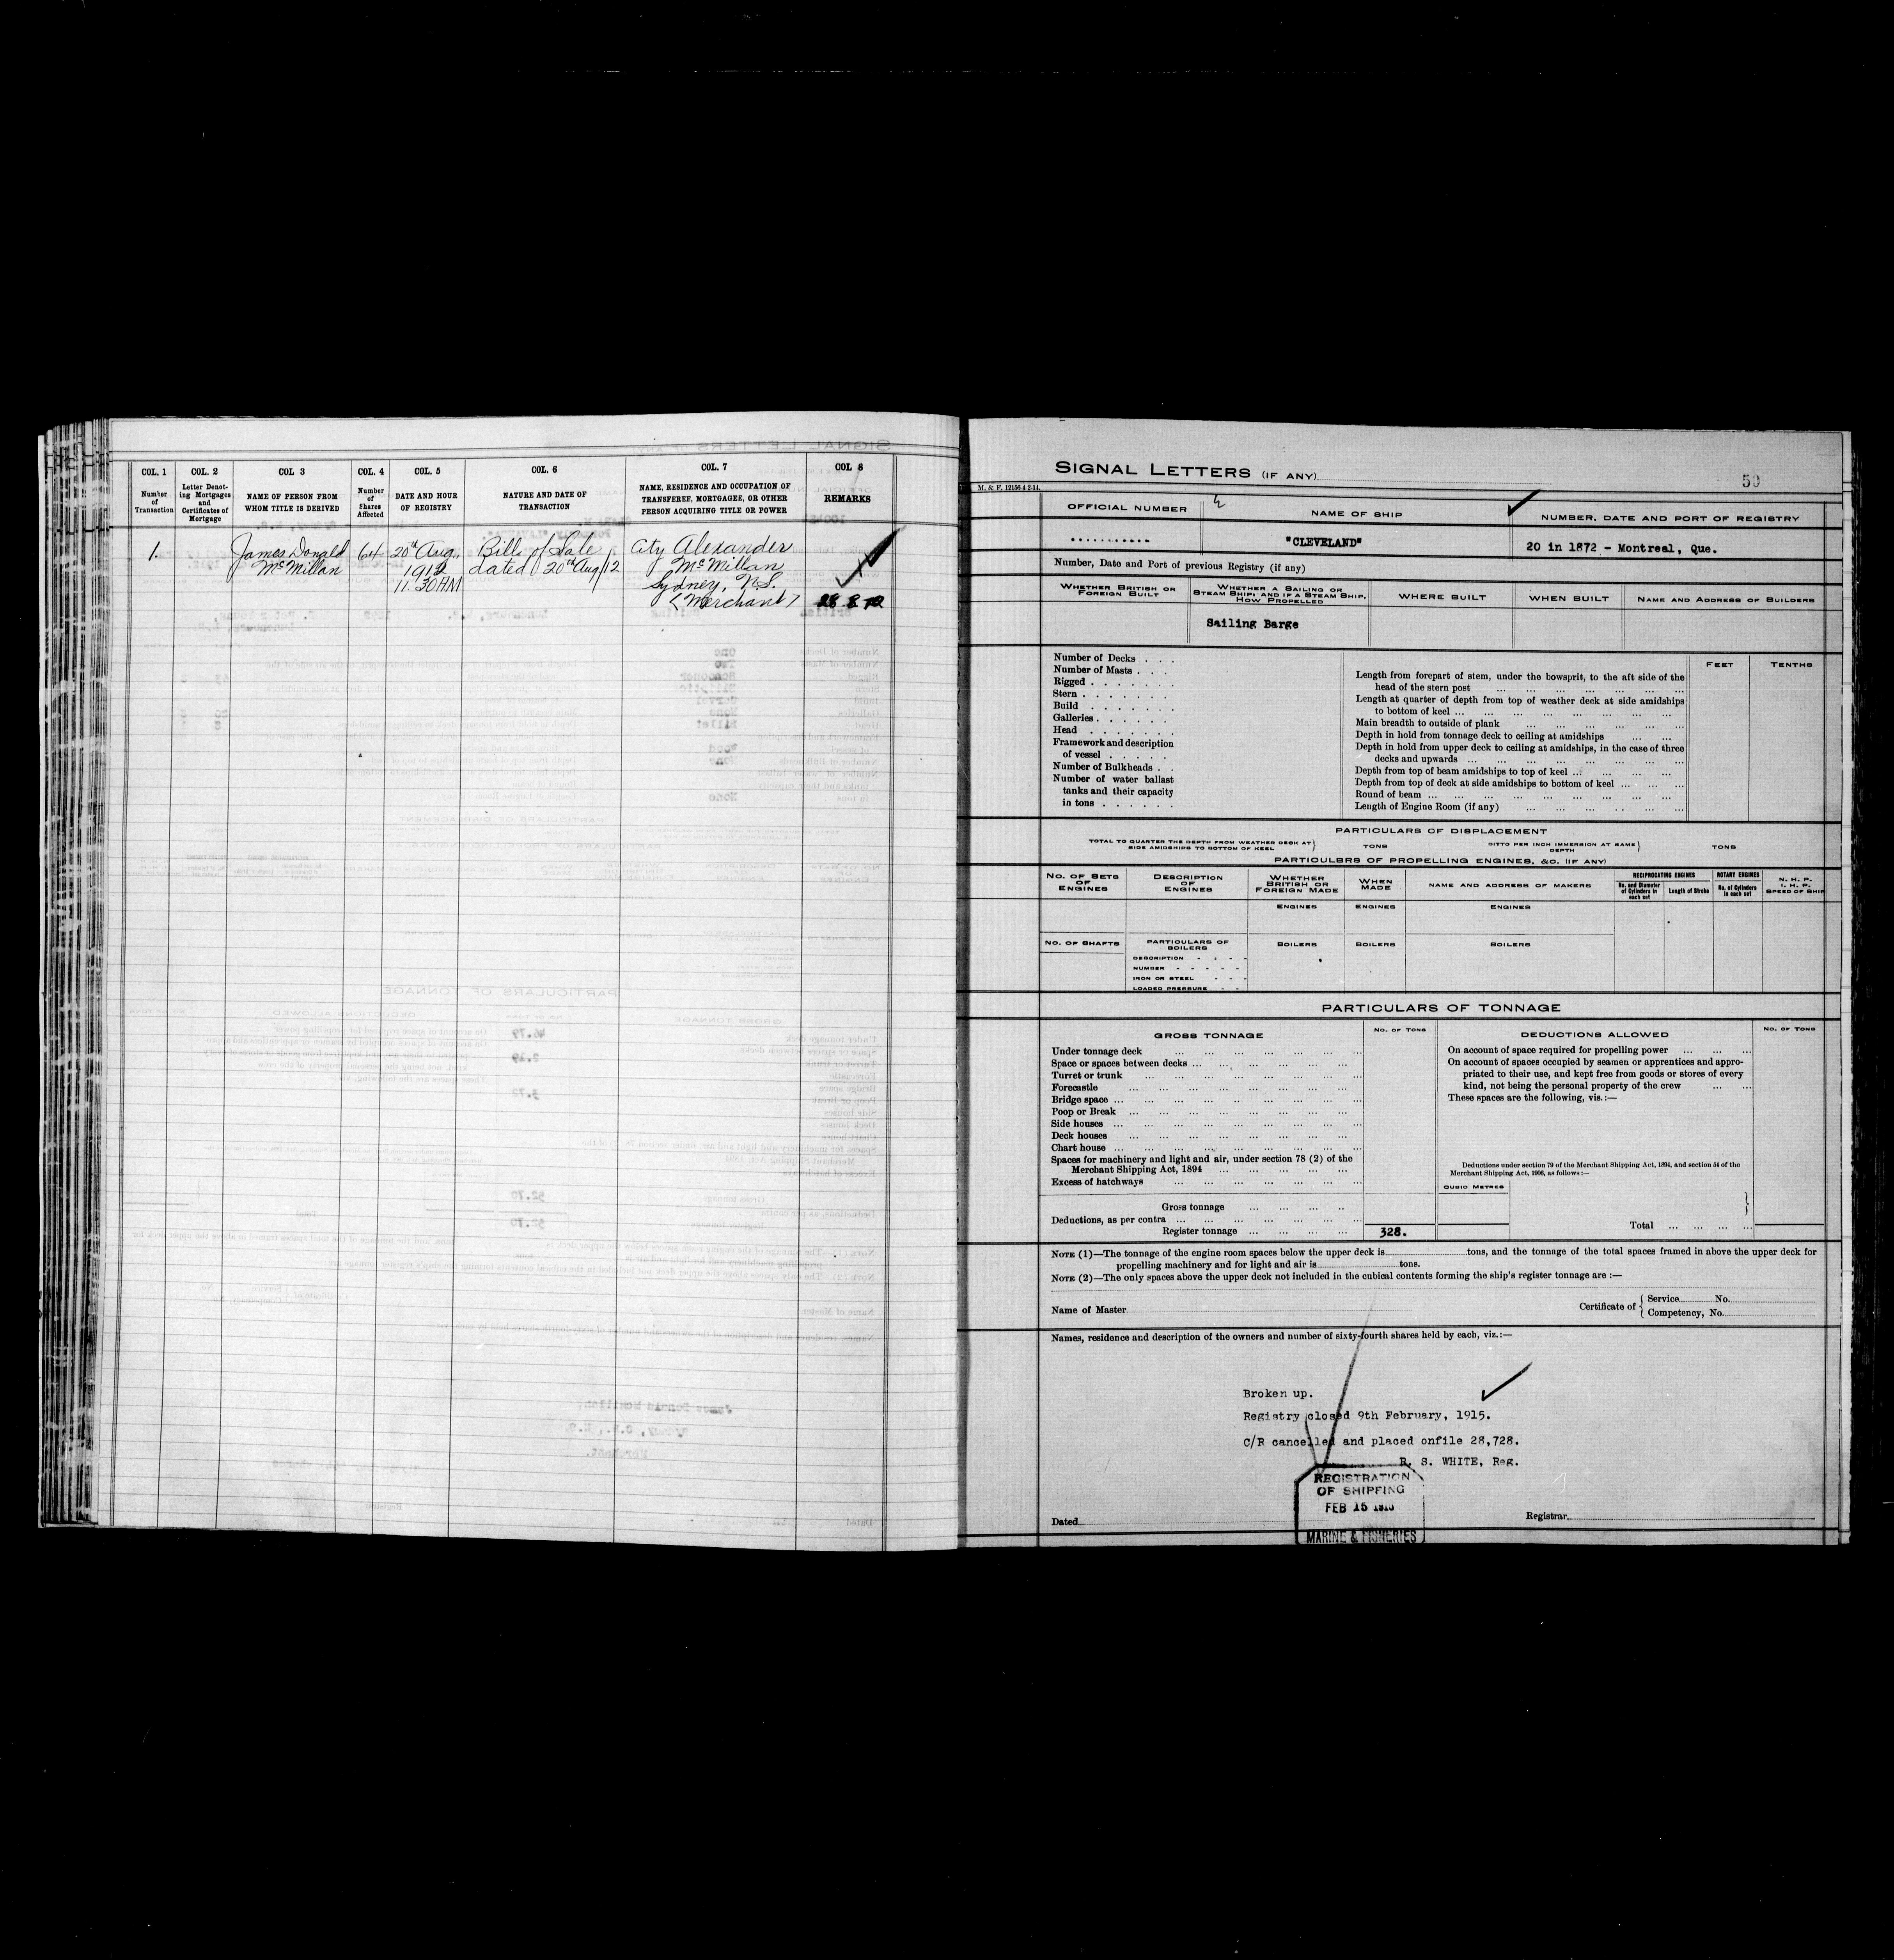 COL. 1
Number
of
Transaction
COL. 2
Letter Denot-
ing Mortgages
and
Certificates of
Mortgage
COL 3
NAME OF PERSON FROM
WHOM TITLE IS DERIVED
COL. 4
Number
of
Shares
Affected
COL. 5
DATE AND HOUR
OF REGISTRY
COL. 6
NATURE AND DATE OF
TRANSACTION
COL. 7
NAME, RESIDENCE AND OCCUPATION OF
TRANSFEREE, MORTGAGES, OR OTHER
PERSON ACQUIRING TITLE OR POWER
COL 8
REMARKS
1.
James Donald
McMillan
64
20th Aug.
1912
11.30 AM
Bill of Sale
dated 20th Aug/12
Alexander
McMillan
Sydney, N.S.
(Merchant)
28 8 12
SIGNAL LETTERS (IF ANY)
50
M. & F. 12156 4-2-14.
OFFICIAL NUMBER
NAME OF SHIP
NUMBER, DATE AND PORT OF REGISTRY
"CLEVELAND"
20 in 1872 - Montreal, Que.
Number, Date and Port of previous Registry (if any)
WHETHER BRITISH OR
FOREIGN BUILT
WHETHER A SAILING OR
STEAM SHIP; AND IF A STEAM SHIP,
HOW PROPELLED
WHERE BUILT
WHEN BUILT
NAME AND ADDRESS OF BUILDERS
Sailing Barge
Number of Decks . . .
Number of Masts . . .
Rigged . . . . . . .
Stern . . . . . . .
Build . . . . . . .
Galleries . . . . . .
Head . . . . . . .
Framework and description
of vessel . . . . .
Number of Bulkheads . .
Number of water ballast
tanks and their capacity
in tons . . . . . .
FEET
TENTHS
Length from forepart of stem, under the bowsprit, to the aft side of the
head of the stern post ... ... ... ... ... ... ...
Length at quarter of depth from top of weather deck at side amidships
to bottom of keel ... ... ... ... ... ... ... ...
Main breadth to outside of plank ... ... ... ... ... ...
Depth in hold from tonnage deck to ceiling at amidships ... ...
Depth in hold from upper deck to ceiling at amidships, in the case of three
decks and upwards ... ... ... ... ... ... ... ...
Depth from top of beam amidships to top of keel ... ... ... ...
Depth from top of deck at side amidships to bottom of keel ... ... ...
Round of beam ... ... ... ... ... ... ... ... ...
Length of Engine Room (if any) ... ... ... ... ... ...
PARTICULARS OF DISPLACEMENT
TOTAL TO QUARTER THE DEPTH FROM WEATHER DECK AT
SIDE AMIDSHIPS TO BOTTOM OF KEEL
TONS
DITTO PER INCH IMMERSION AT SAME
DEPTH
TONS
PARTICULBRS OF PROPELLING ENGINES, &C. (IF ANY)
NO. OF SETS
OF
ENGINES
DESCRIPTION
OF
ENGINES
WHETHER
BRITISH OR
FOREIGN MADE
WHEN
MADE
NAME AND ADDRESS OF MAKERS
RECIPROCATING ENGINES
No. and Diameter
of Cylinders in
each set
Length of Stroke
ROTARY ENGINES
No. of Cylinders
in each set
N. H. P.
I. H. P.
SPEED OF SHIP
ENGINES
ENGINES
ENGINES
NO. OF SHAFTS
PARTICULARS OF
BOILERS
BOILERS
BOILERS
BOILERS
DESCRIPTION - - - -
NUMBER - - - - -
IRON OR STEEL - - -
LOADED PRESSURE - -
PARTICULARS OF TONNAGE
GROSS TONNAGE
NO. OF TONS
DEDUCTIONS ALLOWED
NO. OF TONS
Under tonnage deck ... ... ... ... ... ... ...
Space or spaces between decks ... ... ... ... ... ...
Turret or trunk ... ... ... ... ... ... ... ...
Forecastle ... ... ... ... ... ... ... ...
Bridge space ... ... ... ... ... ... ... ...
Poop or Break ... ... ... ... ... ... ... ...
Side houses ... ... ... ... ... ... ... ...
Deck houses ... ... ... ... ... ... ... ...
Chart house ... ... ... ... ... ... ... ...
Spaces for machinery and light and air, under section 78 (2) of the
Merchant Shipping Act, 1894 ... ... ... ... ...
Excess of hatchways ... ... ... ... ... ... ...
Gross tonnage ... ... ... ..
Deductions, as per contra ... ... ... ... ... ... ...
Register tonnage ... ... ... ...
328.
On account of space required for propelling power ... ... ...
On account of spaces occupied by seamen or apprentices and appro-
priated to their use, and kept free from goods or stores of every
kind, not being the personal property of the crew ... ...
These spaces are the following, vis.:—
Deductions under section 79 of the Merchant Shipping Act, 1894, and section 54 of the
Merchant Shipping Act, 1906, as follows:—
CUBIC METRES
Total ... ... ... ...
NOTE (1)—The tonnage of the engine room spaces below the upper deck is tons, and the tonnage of the total spaces framed in above the upper deck for
propelling machinery and for light and air is tons.
NOTE (2)—The only spaces above the upper deck not included in the cubical contents forming the ship's register tonnage are :—
Name of Master
Certificate of
Service No.
Competency, No.
Names, residence and description of the owners and number of sixty-fourth shares held by each, viz.:—
Broken up.
Registry closed 9th February, 1915.
C/R cancelled and placed onfile 28,728.
R. S. WHITE, Reg.
REGISTRATION
OF SHIPPING
FEB 15 1915
MARINE & FISHERIES
Dated
Registrar